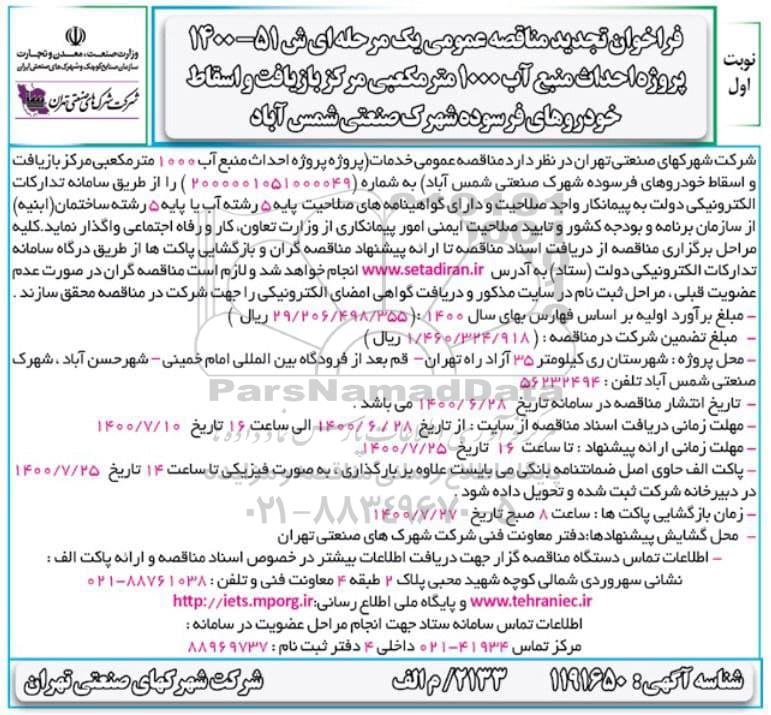 نوبت اول
فراخوان تجدید مناقصه عمومی یک مرحله ای ش ۵۱-۱۴۰۰
پروژه احداث منبع آب ۱۰۰۰ مترمکعبی مرکز بازیافت و اسقاط
خودروهای فرسوده شهرک صنعتی شمس آباد
وزارت صنعت، معدن و تجارت
سازمان صنایع کوچک و شهرک های صنعتی ایران
شرکت شهرک های صنعتی تهران
شرکت شهرکهای صنعتی تهران در نظر دارد مناقصه عمومی خدمات(پروژه پروژه احداث منبع آب ۱۰۰۰ مترمکعبی مرکز بازیافت
و اسقاط خودروهای فرسوده شهرک صنعتی شمس آباد) به شماره (۲۰۰۰۰۰۱۰۵۱۰۰۰۰۴۹ ) را از طریق سامانه تدارکات
الکترونیکی دولت به پیمانکار واجد صلاحیت و دارای گواهینامه های صلاحیت پایه ۵ رشته آب یا پایه ۵ رشته ساختمان(ابنیه)
از سازمان برنامه و بودجه کشور و تایید صلاحیت ایمنی امور پیمانکاری از وزارت تعاون، کار و رفاه اجتماعی واگذار نماید.کلیه
مراحل برگزاری مناقصه از دریافت اسناد مناقصه تا ارائه پیشنهاد مناقصه گران و بازگشایی پاکت ها از طریق درگاه سامانه
تدارکات الکترونیکی دولت (ستاد) به آدرس www.setadiran.ir انجام خواهد شد و لازم است مناقصه گران در صورت عدم
عضویت قبلی ، مراحل ثبت نام در سایت مذکور و دریافت گواهی امضای الکترونیکی را جهت شرکت در مناقصه محقق سازند .
- مبلغ برآورد اولیه بر اساس فهارس بهای سال ۱۴۰۰ :( ۲۹/۲۰۶/۴۹۸/۳۵۵ ریال )
- مبلغ تضمین شرکت در مناقصه : ( ۱/۴۶۰/۳۲۴/۹۱۸ ریال )
- محل پروژه : شهرستان ری کیلومتر ۳۵ آزاد راه تهران- قم بعد از فرودگاه بین المللی امام خمینی-شهرحسن آباد ، شهرک
صنعتی شمس آباد تلفن : ۵۶۲۳۲۴۹۴
- تاریخ انتشار مناقصه در سامانه تاریخ ۱۴۰۰/۶/۲۸ می باشد .
- مهلت زمانی دریافت اسناد مناقصه از سایت : از تاریخ ۱۴۰۰/۶/۲۸ الی ساعت ۱۶ تاریخ ۱۴۰۰/۷/۱۰
- مهلت زمانی ارائه پیشنهاد : تا ساعت ۱۶ تاریخ ۱۴۰۰/۷/۲۵
- پاکت الف حاوی اصل ضمانتنامه بانکی می بایست علاوه بر بارگذاری ، به صورت فیزیکی تا ساعت ۱۴ تاریخ ۱۴۰۰/۷/۲۵
در دبیرخانه شرکت ثبت شده و تحویل داده شود .
- زمان بازگشایی پاکت ها : ساعت ۸ صبح تاریخ ۱۴۰۰/۷/۲۷
- محل گشایش پیشنهادها:دفتر معاونت فنی شرکت شهرک های صنعتی تهران
- اطلاعات تماس دستگاه مناقصه گزار جهت دریافت اطلاعات بیشتر در خصوص اسناد مناقصه و ارائه پاکت الف :
نشانی سهروردی شمالی کوچه شهید محبی پلاک ۲ طبقه ۴ معاونت فنی و تلفن : ۸۸۷۶۱۰۳۸-۰۲۱
www.tehraniec.ir و پایگاه ملی اطلاع رسانی:http://iets.mporg.ir
اطلاعات تماس سامانه ستاد جهت انجام مراحل عضویت در سامانه :
مرکز تماس ۴۱۹۳۴-۰۲۱ داخلی ۴ دفتر ثبت نام : ۸۸۹۶۹۷۳۷
ParsNamadData
۰۲۱-۸۸۳۴۹۶۷۰-۵
شناسه آگهی : ۱۱۹۱۶۵۰ ۲۱۳۳/ م الف شرکت شهرکهای صنعتی تهران